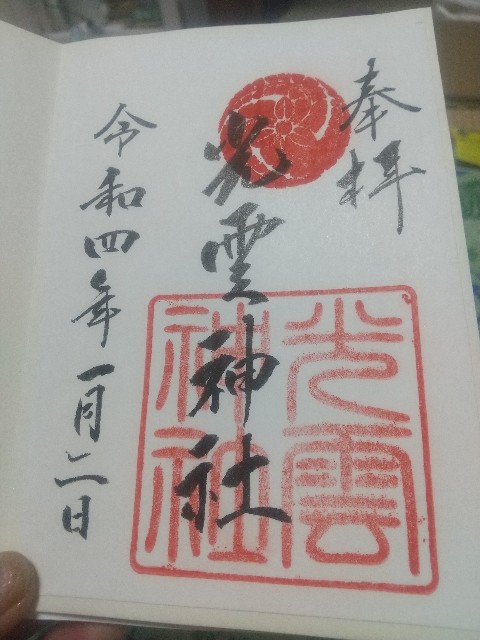 奉拝
光雲神社
光雲
神社
令和四年一月二日